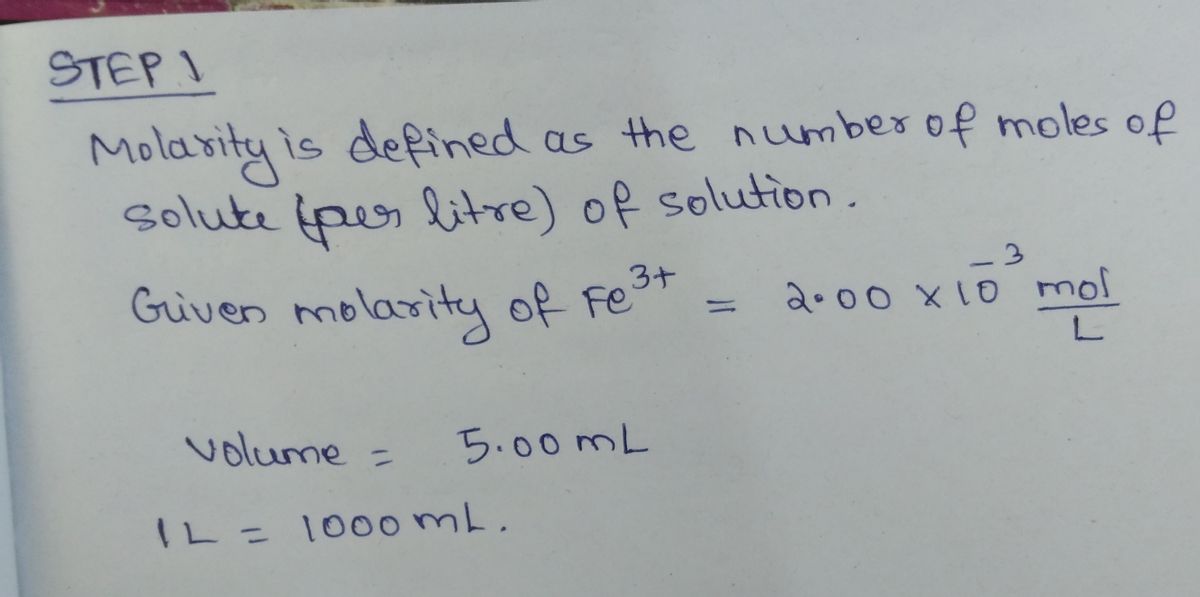 STEP 1
Molarity is defined as the number of moles of
solute (per litre) of solution.
Given molarity of Fe³⁺ = 2.00 × 10⁻³ mol/L
volume = 5.00 mL
1L = 1000 mL.